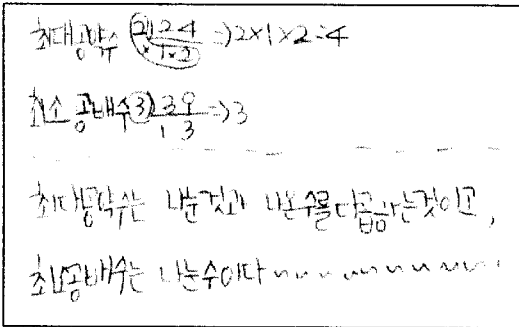 최대공약수 2)2 4 =>2×1×2=4
×1×2
최소공배수 3)3 9 =>3
1 3
최대공약수는 나눈것과 나온수를 다곱하는것이고,
최소공배수는 나눈수이다